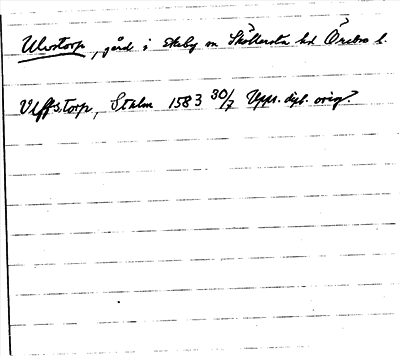 Ulvstorp, gård i Ekeby sn Sköllersta hd Örebro l.
Ulffstorp, Sthlm 1583 30/7 Upps. dipl. orig.